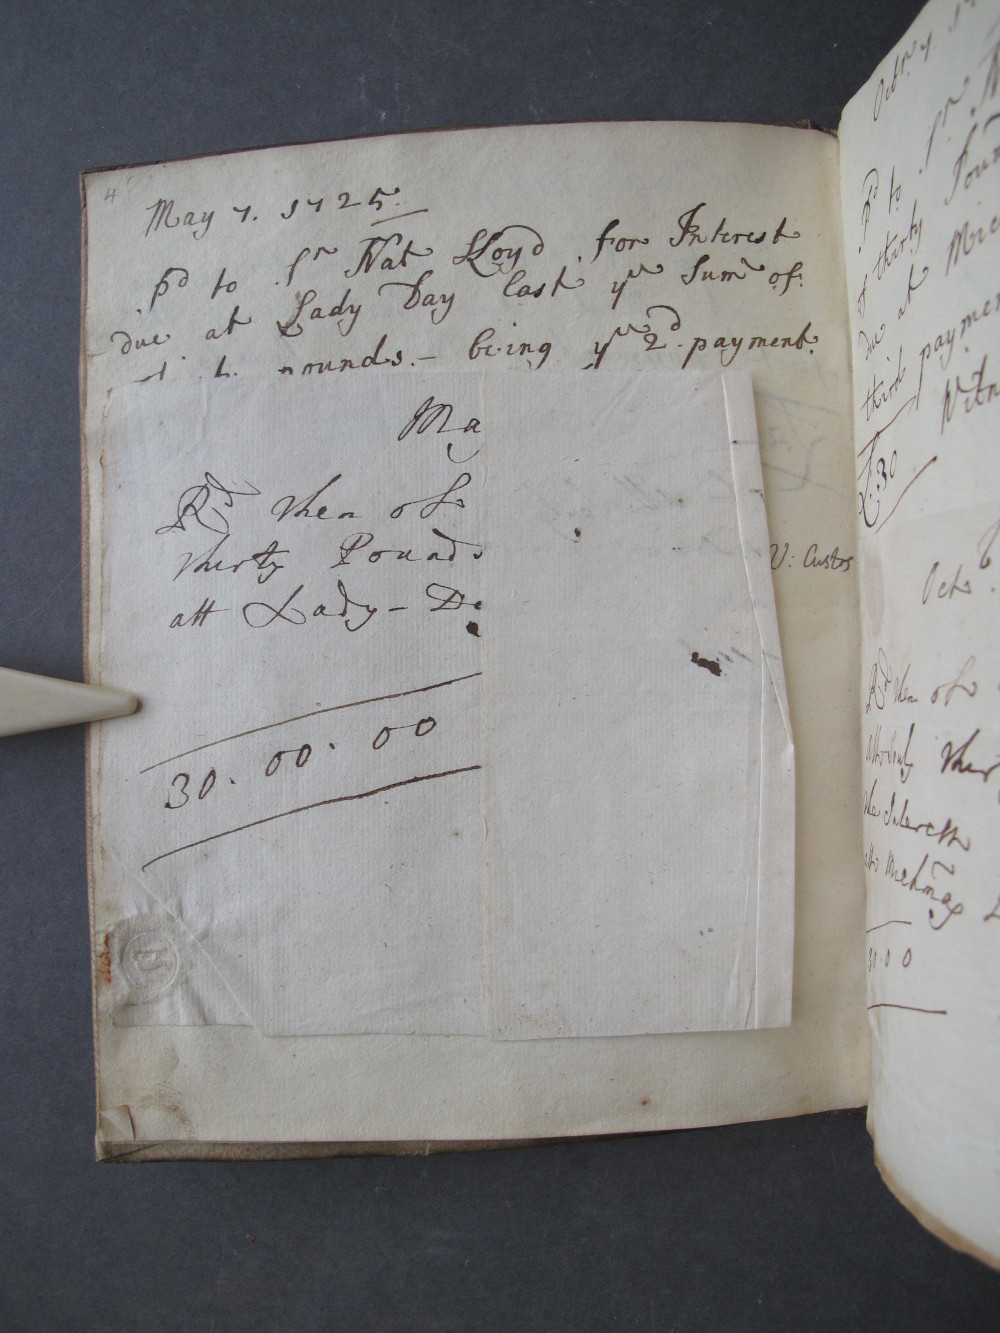 4
May 7. 1725.
pd to Sr Nat Lloyd for Interest
due at Lady Day last ye Sum of
pounds. – being ye 2d payment.
Ma
Rd then of
thirty Pounds
att Lady – Da
30. 00. 00
V: Custos
Octbr 7. 17
pd to Sr N
of thirty Poun
due at Mic
third payme
Witn
£:30
Octb. 6
Rd then of
thir
the Interest
att Michmas
30. 0 0